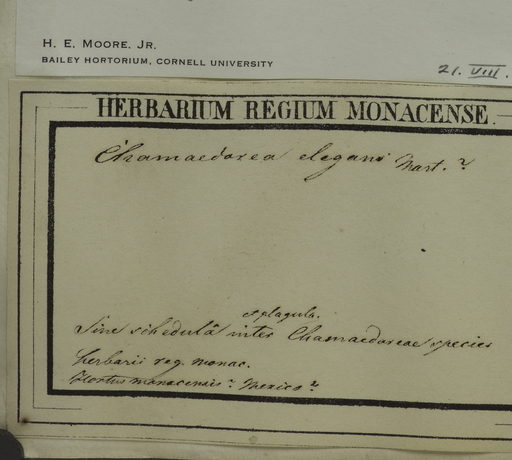 H. E. MOORE, JR.
BAILEY HORTORIUM, CORNELL UNIVERSITY
21. VIII.
HERBARIUM REGIUM MONACENSE.
Chamaedorea elegans Mart. ?
et plagula.
Sine schedulâ inter Chamaedoreae species
herbarii reg. monac.
Hortus monacensis? Mexico?